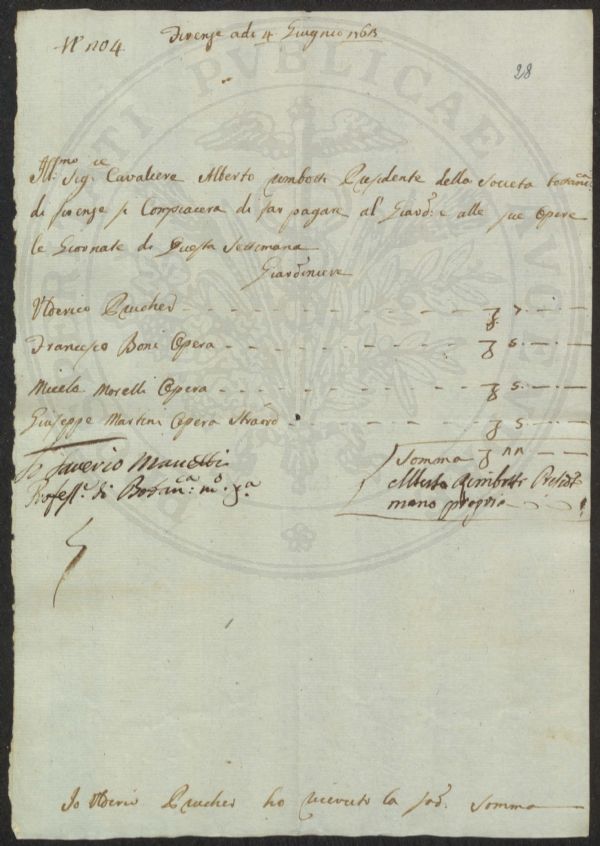 N° 1204.
Firenze adì 4 Giugnio 1763
28
Ill:mo Sig:re Cavaliere Alberto Rimbotti Presidente della Società bottanica:
di firenze si Compiacerà di far pagare al' Giard:e e alle sue Opere
le Giornate di Questa Settimana
Giardiniere
Uderico Prucher 7
Francesco Boni Opera 5
Micele Morelli Opera 5
Giuseppe Martini Opera Straord 5
Io Saverio Manetti
Profess:e di Botan:ca m:o p:a
Somma
Alberto Rimbotti Presid:te
mano propria
Io Uderico Prucher ho ricevuto la sad:a Somma